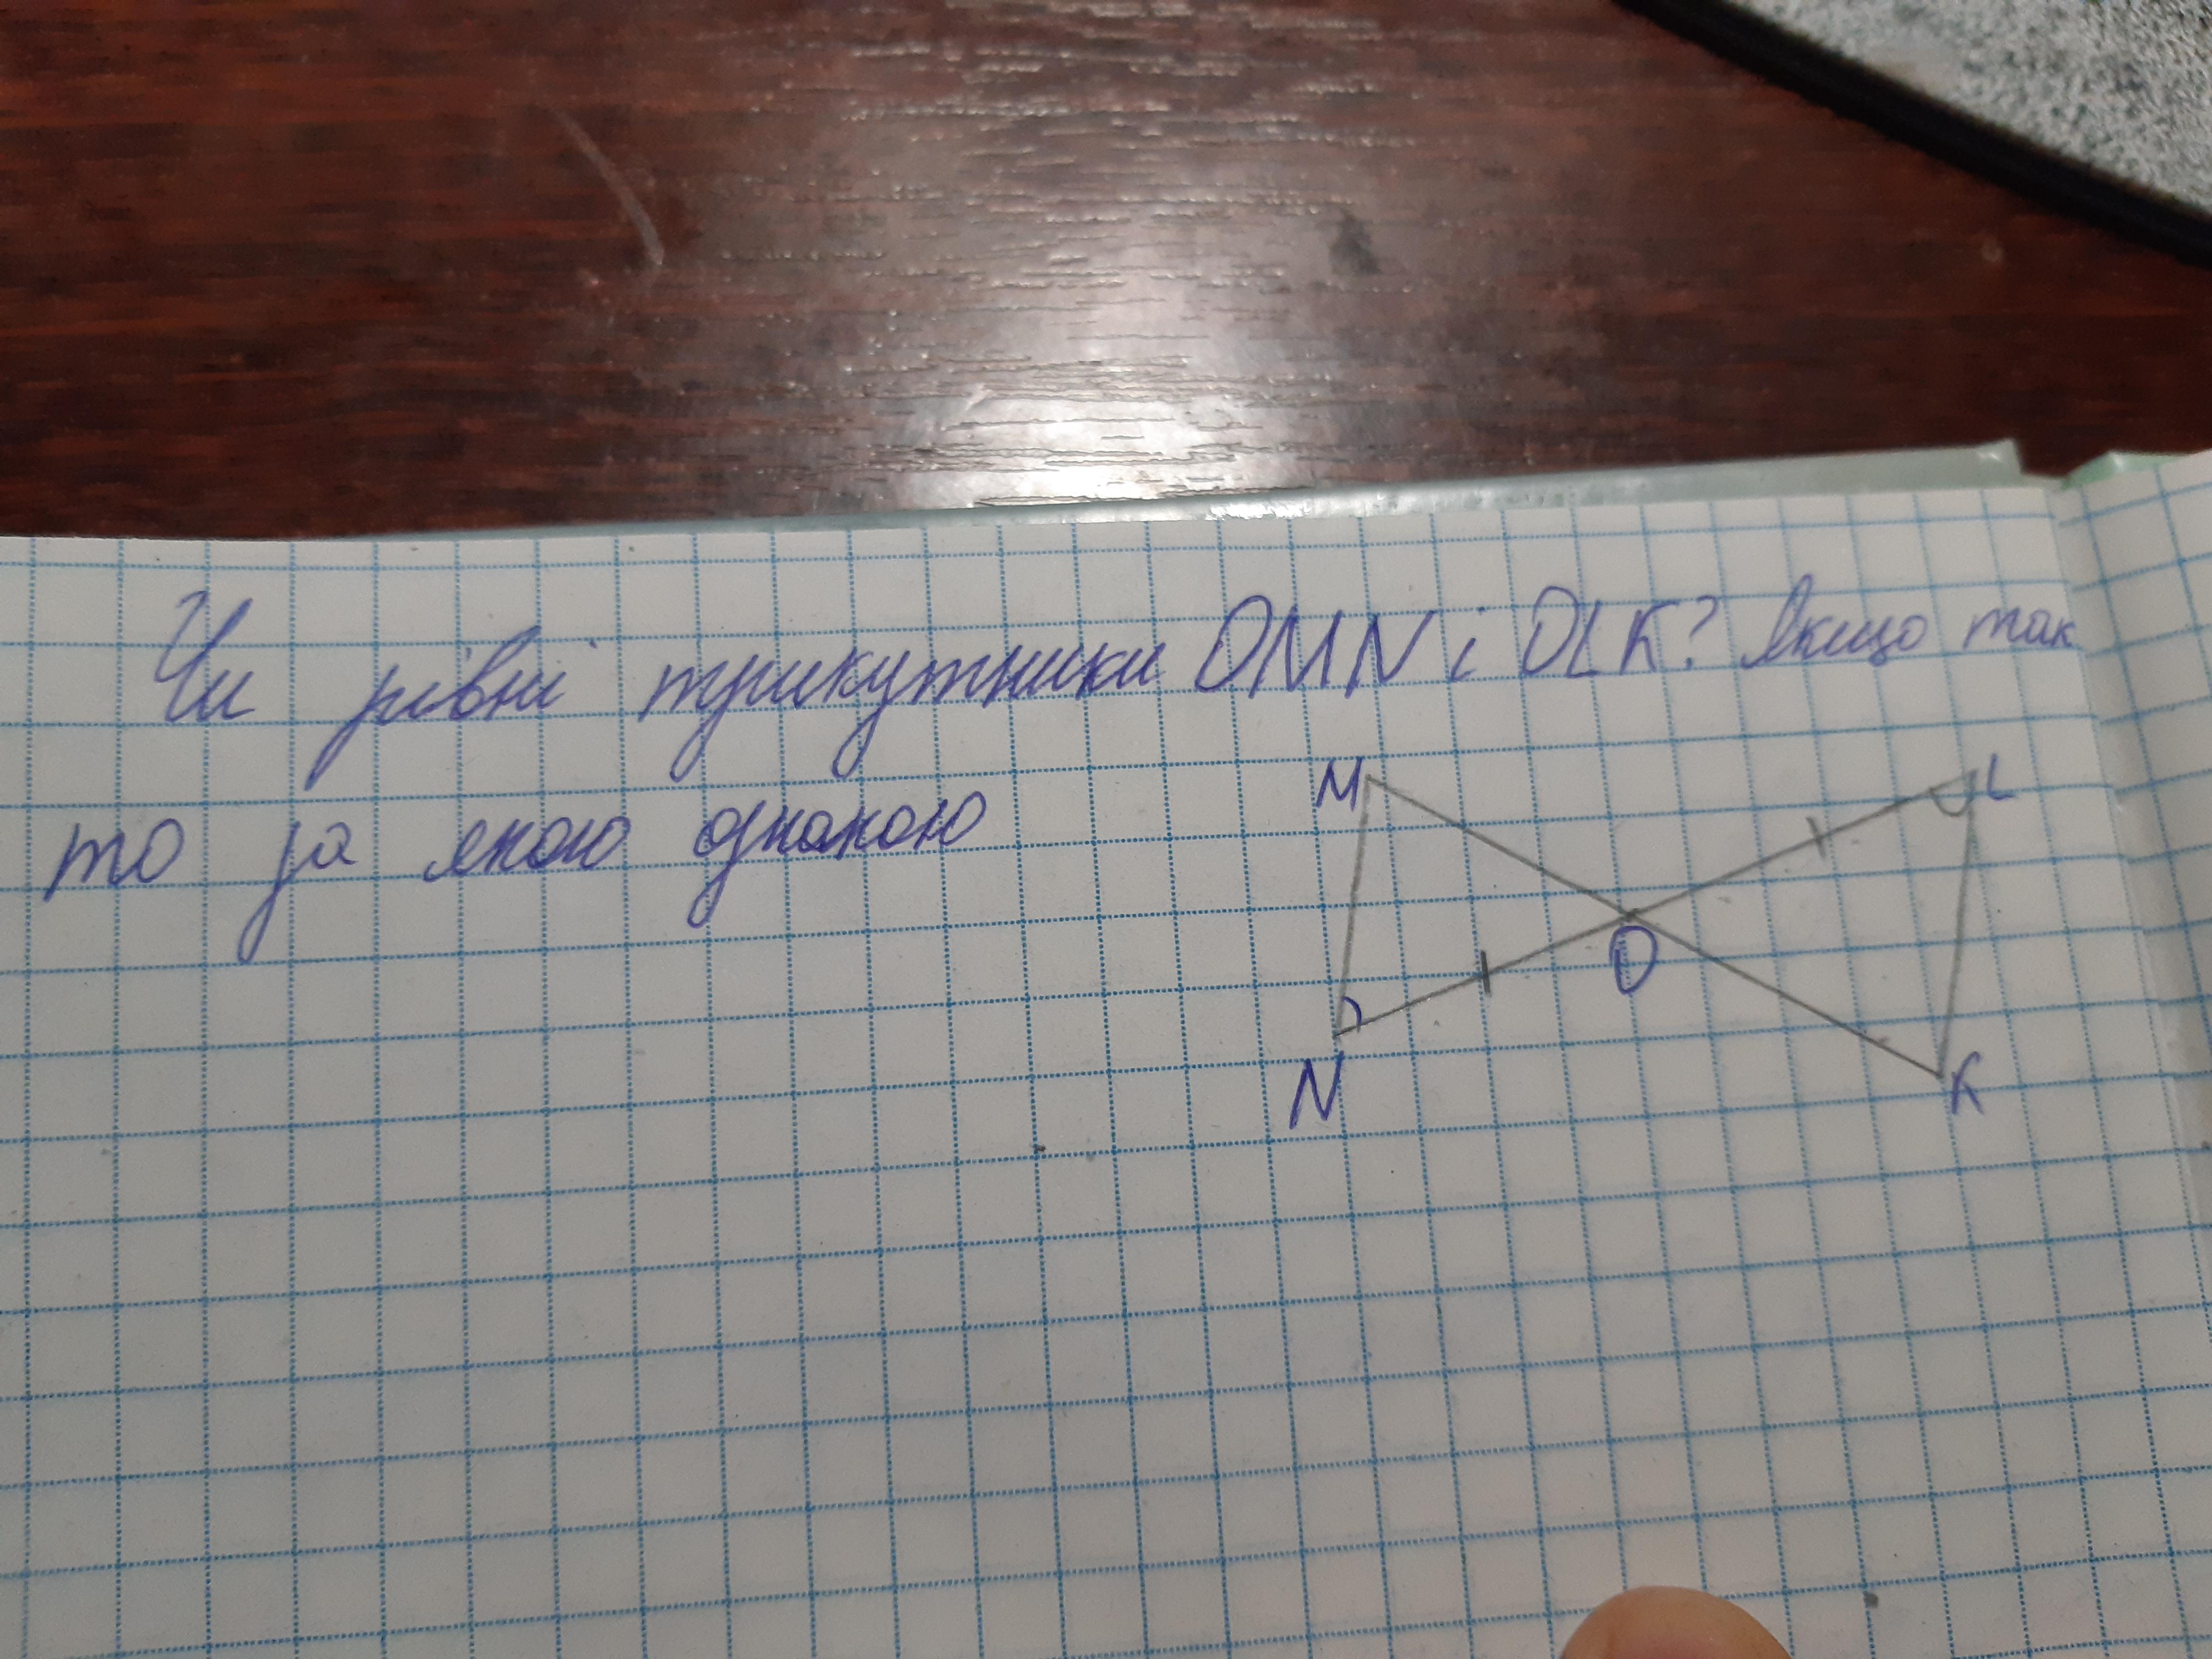 Чи рівні трикутники OMN і OLK? Якщо так
то за якою ознакою
M
L
O
N
K